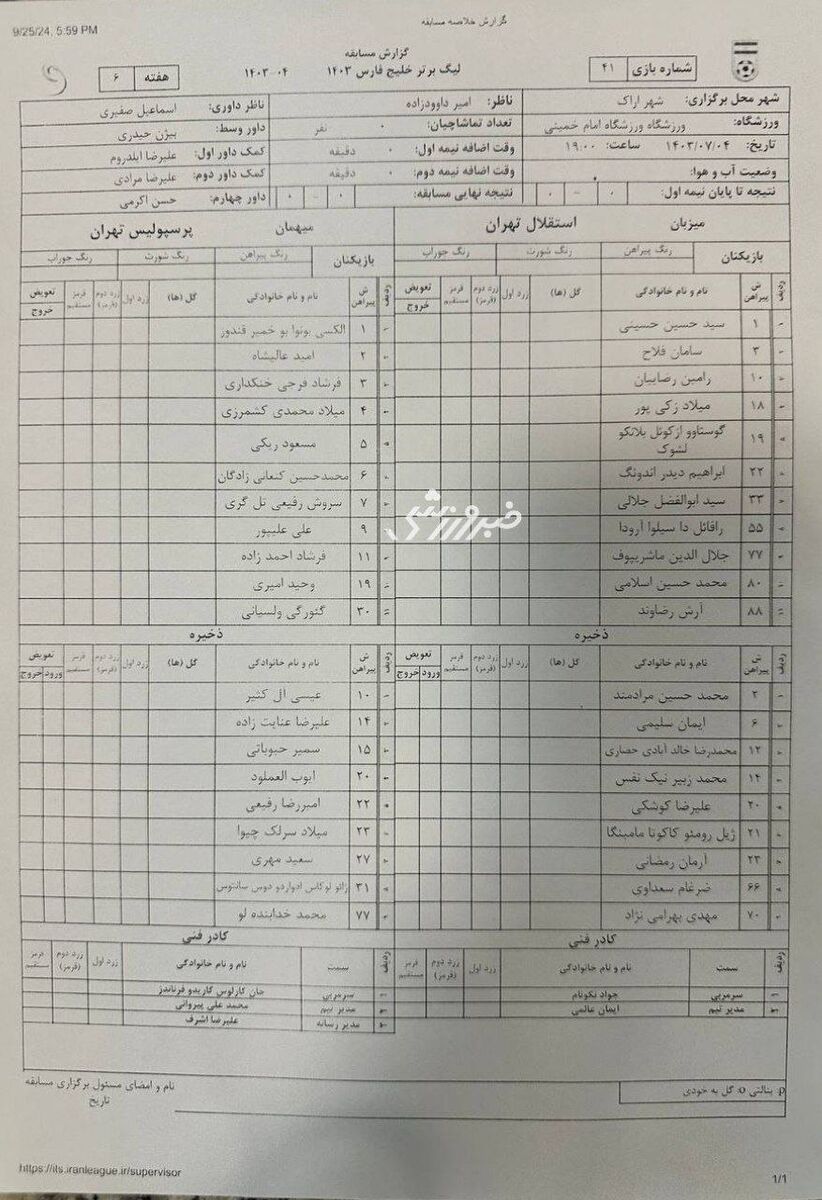 9/25/24, 5:59 PM
گزارش خلاصه مسابقه
گزارش مسابقه
لیگ برتر خلیج فارس ۱۴۰۳ ۰۴-۱۴۰۳
شماره بازی ۴۱
هفته ۶
شهر محل برگزاری: شهر اراک
ورزشگاه: ورزشگاه ورزشگاه امام خمینی
تاریخ: ۱۴۰۳/۰۷/۰۴ ساعت: ۱۹:۰۰
وضعیت آب و هوا:
نتیجه تا پایان نیمه اول: ۰ - ۰
ناظر: امیر داوودزاده
تعداد تماشاچیان: ۰ نفر
وقت اضافه نیمه اول: ۰ دقیقه
وقت اضافه نیمه دوم: ۰ دقیقه
نتیجه نهایی مسابقه: ۰ - ۰
ناظر داوری: اسماعیل صفیری
داور وسط: بیژن حیدری
کمک داور اول: علیرضا ایلدروم
کمک داور دوم: علیرضا مرادی
داور چهارم: حسن اکرمی
میزبان استقلال تهران
بازیکنان رنگ پیراهن رنگ شورت رنگ جوراب
ردیف ش پیراهن نام و نام خانوادگی گل (ها) زرد اول زرد دوم (قرمز) قرمز مستقیم تعویض خروج
۱ سید حسین حسینی
۳ سامان فلاح
۱۰ رامین رضاییان
۱۸ میلاد زکی پور
۱۹ گوستاوو ازکوئل بلانکو
لشوک
۲۲ ابراهیم دیدر اندونگ
۳۳ سید ابوالفضل جلالی
۵۵ رافائل دا سیلوا آرودا
۷۷ جلال الدین ماشریپوف
۸۰ محمد حسین اسلامی
۸۸ آرش رضاوند
ذخیره
ردیف ش پیراهن نام و نام خانوادگی گل (ها) زرد اول زرد دوم (قرمز) قرمز مستقیم تعویض ورود خروج
۲ محمد حسین مرادمند
۶ ایمان سلیمی
۱۲ محمدرضا خالد آبادی حصاری
۱۴ محمد زبیر نیک نفس
۲۰ علیرضا کوشکی
۲۱ ژیل رومئو کاکوتا مامبنگا
۲۳ آرمان رمضانی
۶۶ ضرغام سعداوی
۷۰ مهدی بهرامی نژاد
کادر فنی
ردیف سمت نام و نام خانوادگی زرد اول زرد دوم (قرمز) قرمز مستقیم
سرمربی جواد نکونام
مدیر تیم ایمان عالمی
میهمان پرسپولیس تهران
بازیکنان رنگ پیراهن رنگ شورت رنگ جوراب
ردیف ش پیراهن نام و نام خانوادگی گل (ها) زرد اول زرد دوم (قرمز) قرمز مستقیم تعویض خروج
۱ الکسی بونوا یو خمیر قندور
۲ امید عالیشاه
۳ فرشاد فرجی خنکداری
۴ میلاد محمدی کشمرزی
۵ مسعود ریگی
۶ محمدحسین کنعانی زادگان
۷ سروش رفیعی تل گری
۹ علی علیپور
۱۱ فرشاد احمد زاده
۱۹ وحید امیری
۳۰ گئورگی ولسیانی
ذخیره
ردیف ش پیراهن نام و نام خانوادگی گل (ها) زرد اول زرد دوم (قرمز) قرمز مستقیم تعویض ورود خروج
۱۰ عیسی ال کثیر
۱۴ علیرضا عنایت زاده
۱۵ سمیر حبوباتی
۲۰ ایوب العملود
۲۲ امیررضا رفیعی
۲۳ میلاد سرلک چیوا
۲۷ سعید مهری
۳۱ ژائو لوکاس ادواردو دوس سانتوس
۷۷ محمد خدابنده لو
کادر فنی
ردیف سمت نام و نام خانوادگی زرد اول زرد دوم (قرمز) قرمز مستقیم
سرمربی خان کارلوس گاریدو فرناندز
مدیر تیم محمد علی پیروانی
مدیر رسانه علیرضا اشرف
p: پنالتی o: گل به خودی
نام و امضای مسئول برگزاری مسابقه
تاریخ
خبرورزشی
https://its.iranleague.ir/supervisor
1/1